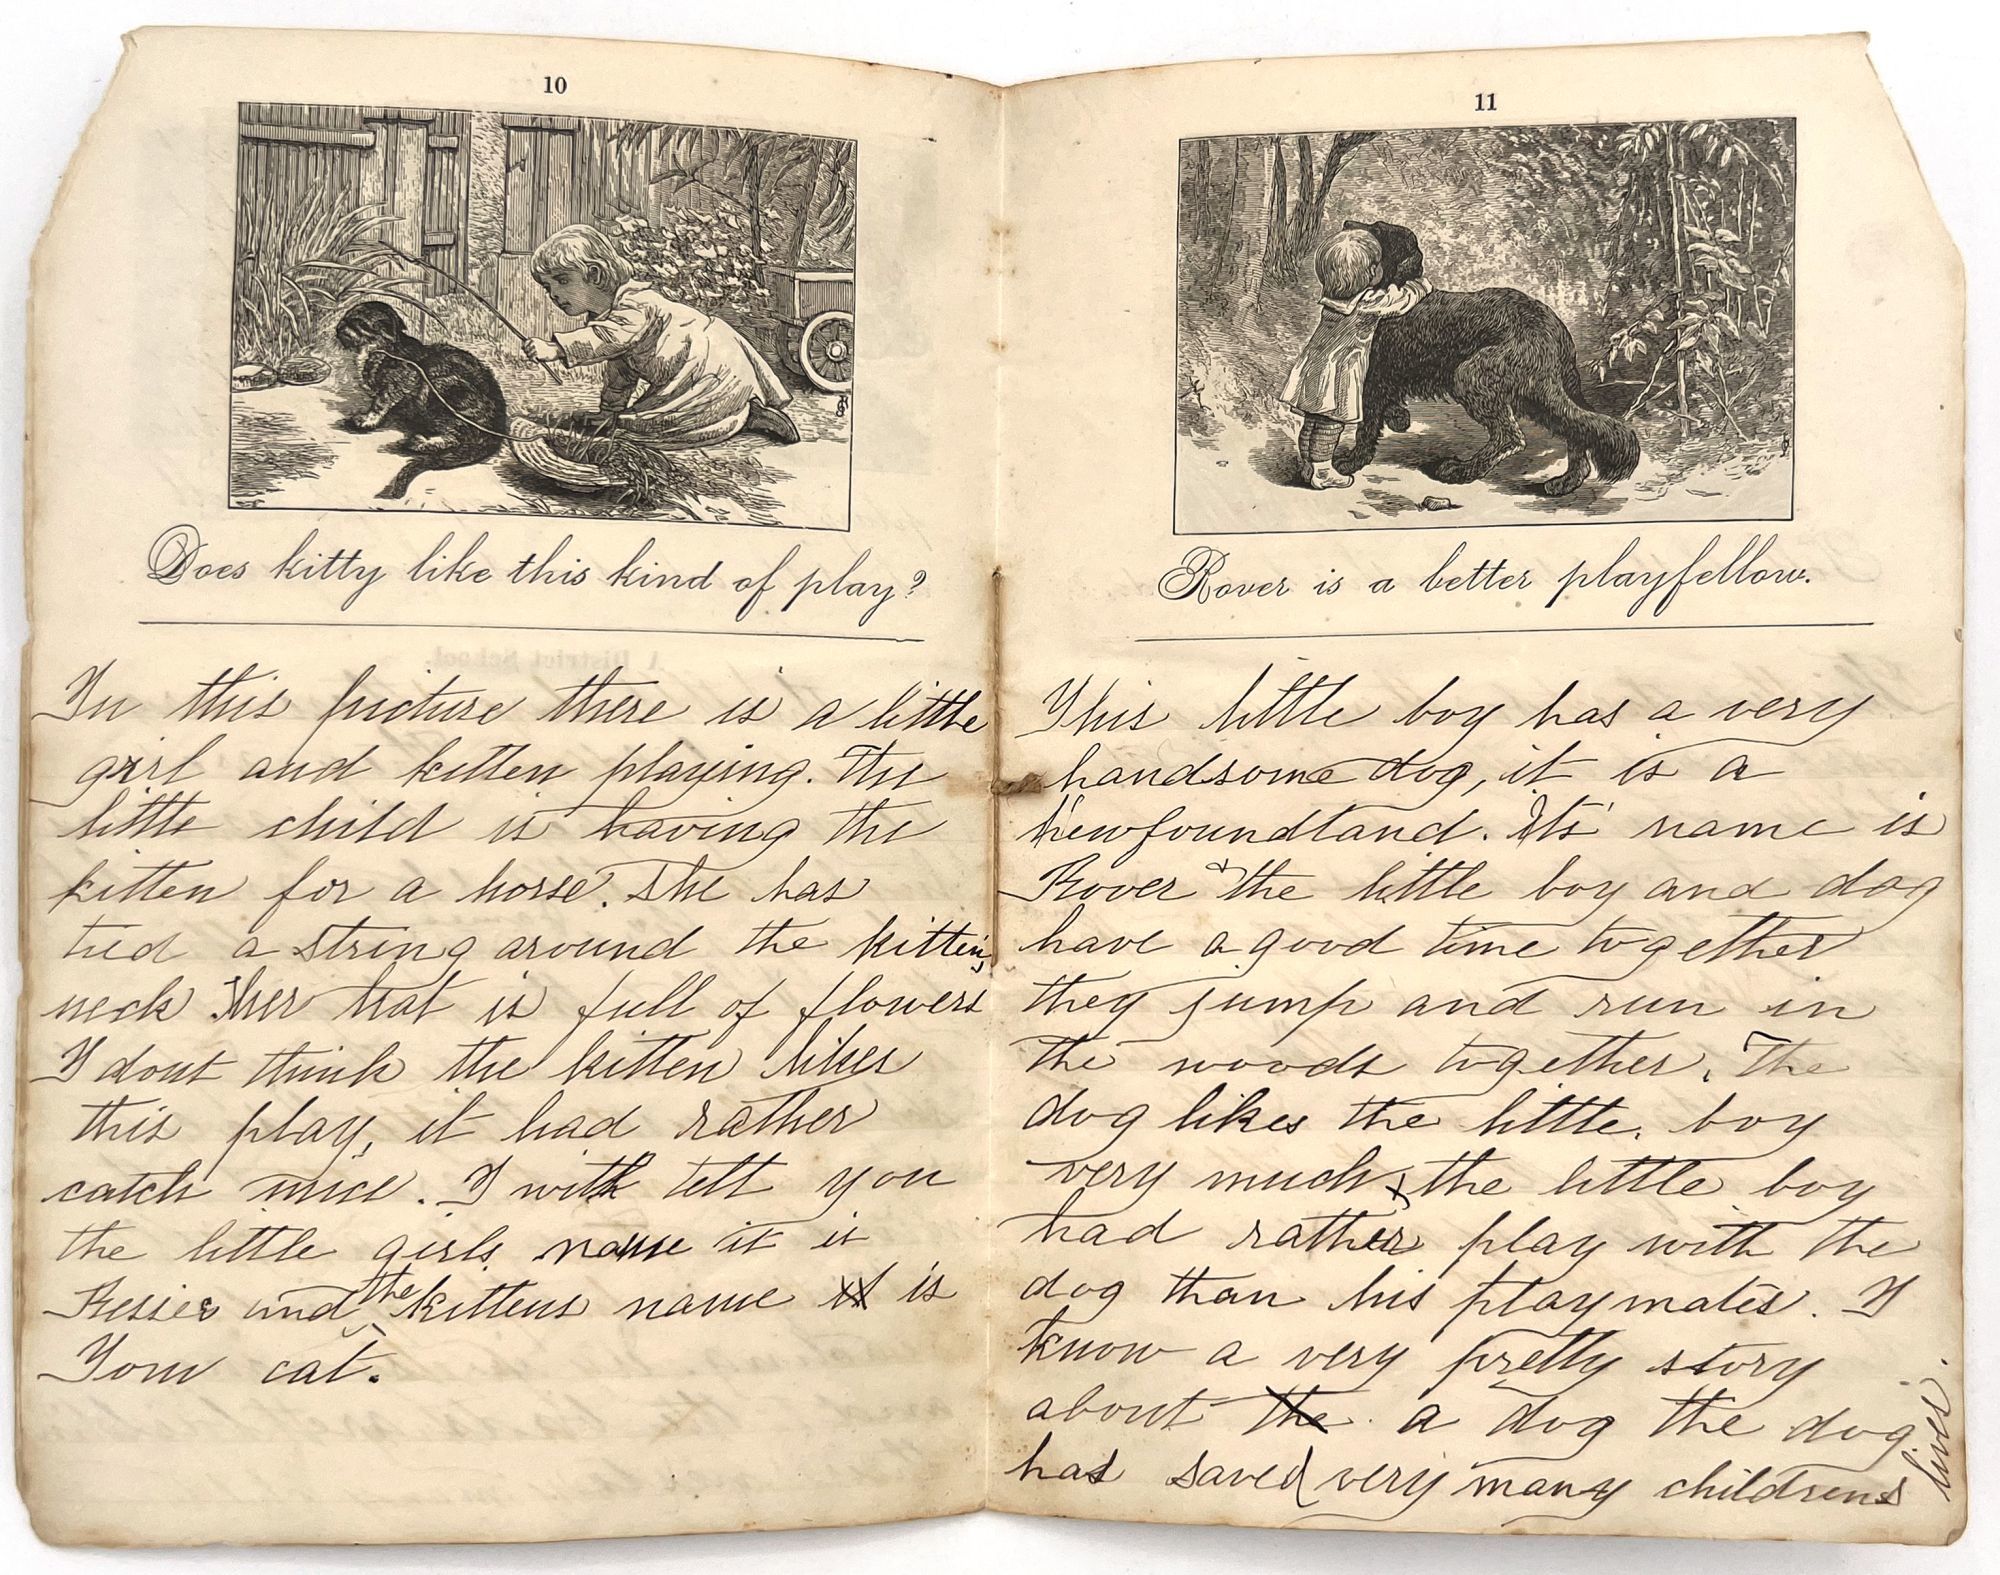 10
Does kitty like this kind of play?
In this picture there is a little
girl and kitten playing. The
little child is having the
kitten for a horse. She has
tied a string around the kittens
neck her hat is full of flowers
I dont think the kitten likes
this play, it had rather
catch mice. I will tell you
the little girls name it is
Bessie and the kittens name is
Tom cat.
11
Rover is a better playfellow.
This little boy has a very
handsome dog, it is a
Newfoundland. Its' name is
Rover & the little boy and dog
have a good time together
they jump and run in
the woods together. The
dog likes the little boy
very much, the little boy
had rather play with the
dog than his playmates. I
know a very pretty story
about the a dog the dog
has saved very many childrens
lives.